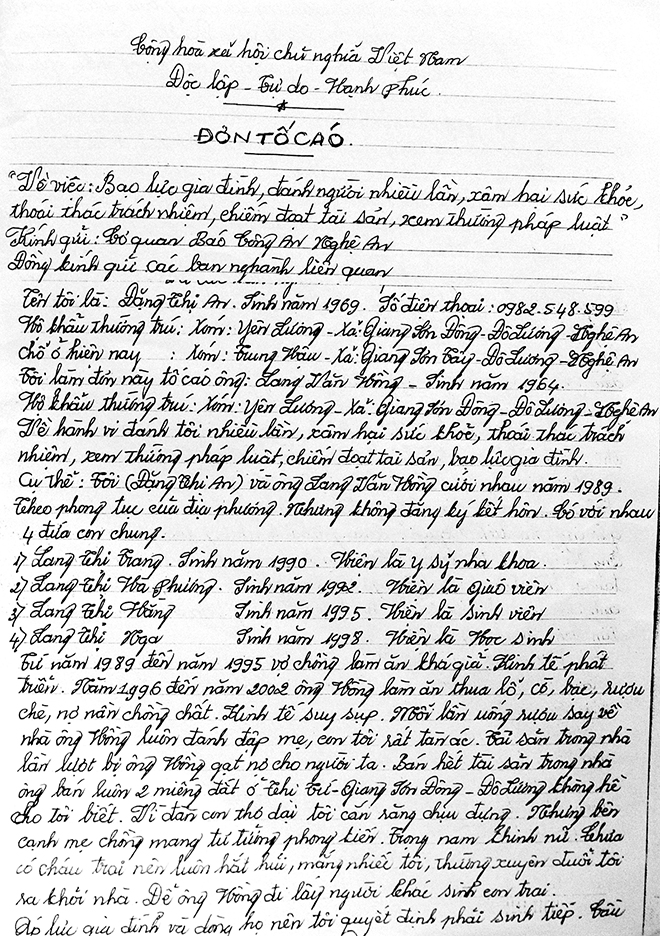 Cộng hoà xã hội chủ nghĩa Việt Nam
Độc lập - Tự do - Hạnh Phúc.
ĐƠN TỐ CÁO.
"Về việc: Bạo lực gia đình, đánh người nhiều lần, xâm hại sức khỏe,
thoái thác trách nhiệm, chiếm đoạt tài sản, xem thường pháp luật"
Kính gửi: Cơ quan Báo Công An Nghệ An
Đồng kính gửi các ban nghành liên quan
Tên tôi là: Đặng Thị An. Sinh năm 1969. Số điện thoại: 0982.548.599
Hộ khẩu thường trú: Xóm: Yên Lương - Xã: Giang Sơn Đông - Đô Lương - Nghệ An
chổ ở hiện nay : Xóm: Trung Hậu - Xã: Giang Sơn Tây - Đô Lương - Nghệ An
Tôi làm đơn này tố cáo ông: Lang Văn Hồng - Sinh năm 1964.
Hộ khẩu thường trú: Xóm: Yên Lương - Xã: Giang Sơn Đông - Đô Lương - Nghệ An
Về hành vi đánh tôi nhiều lần, xâm hại sức khoẻ, thoái thác trách
nhiệm, xem thường pháp luật, chiếm đoạt tài sản, bạo lực gia đình.
Cụ thể: Tôi (Đặng Thị An) và ông Lang Văn Hồng cưới nhau năm 1989.
Theo phong tục của địa phương. Nhưng không đăng ký kết hôn. Có với nhau
4 đứa con chung.
1) Lang Thị Trang. Sinh năm 1990. Hiện là y sỹ nha khoa.
2) Lang Thị Hà Phương. Sinh năm 1992. Hiện là giáo viên
3) Lang Thị Hằng Sinh năm 1995. Hiện là sinh viên
4) Lang Thị Nga Sinh năm 1998. Hiện là Học sinh
Từ năm 1989 đến năm 1995 vợ chồng làm ăn khá giả. Kinh tế phát
triển. Năm 1996 đến năm 2002 ông Hồng làm ăn thua lỗ, cờ, bạc, rượu
chè, nợ nần chồng chất. Kinh tế suy sụp. Mỗi lần uống rượu say về
nhà ông Hồng luôn đánh đập mẹ, con tôi rất tàn ác. Tài sản trong nhà
lần lượt bị ông Hồng gạt nợ cho người ta. Bán hết tài sản trong nhà
ông bán luôn 2 miếng đất ở Thị Tứ - Giang Sơn Đông - Đô Lương không hề
cho tôi biết. Vì đàn con thơ dại tôi cắn răng chịu đựng. Nhưng bên
cạnh mẹ chồng mang tư tưởng phong kiến. Trọng nam khinh nữ. Chưa
có cháu trai nên luôn hắt hủi, mắng nhiếc tôi, thường xuyên đuổi tôi
ra khỏi nhà. Để ông Hồng đi lấy người khác sinh con trai.
Áp lực gia đình và dòng họ nên tôi quyết định phải sinh tiếp.